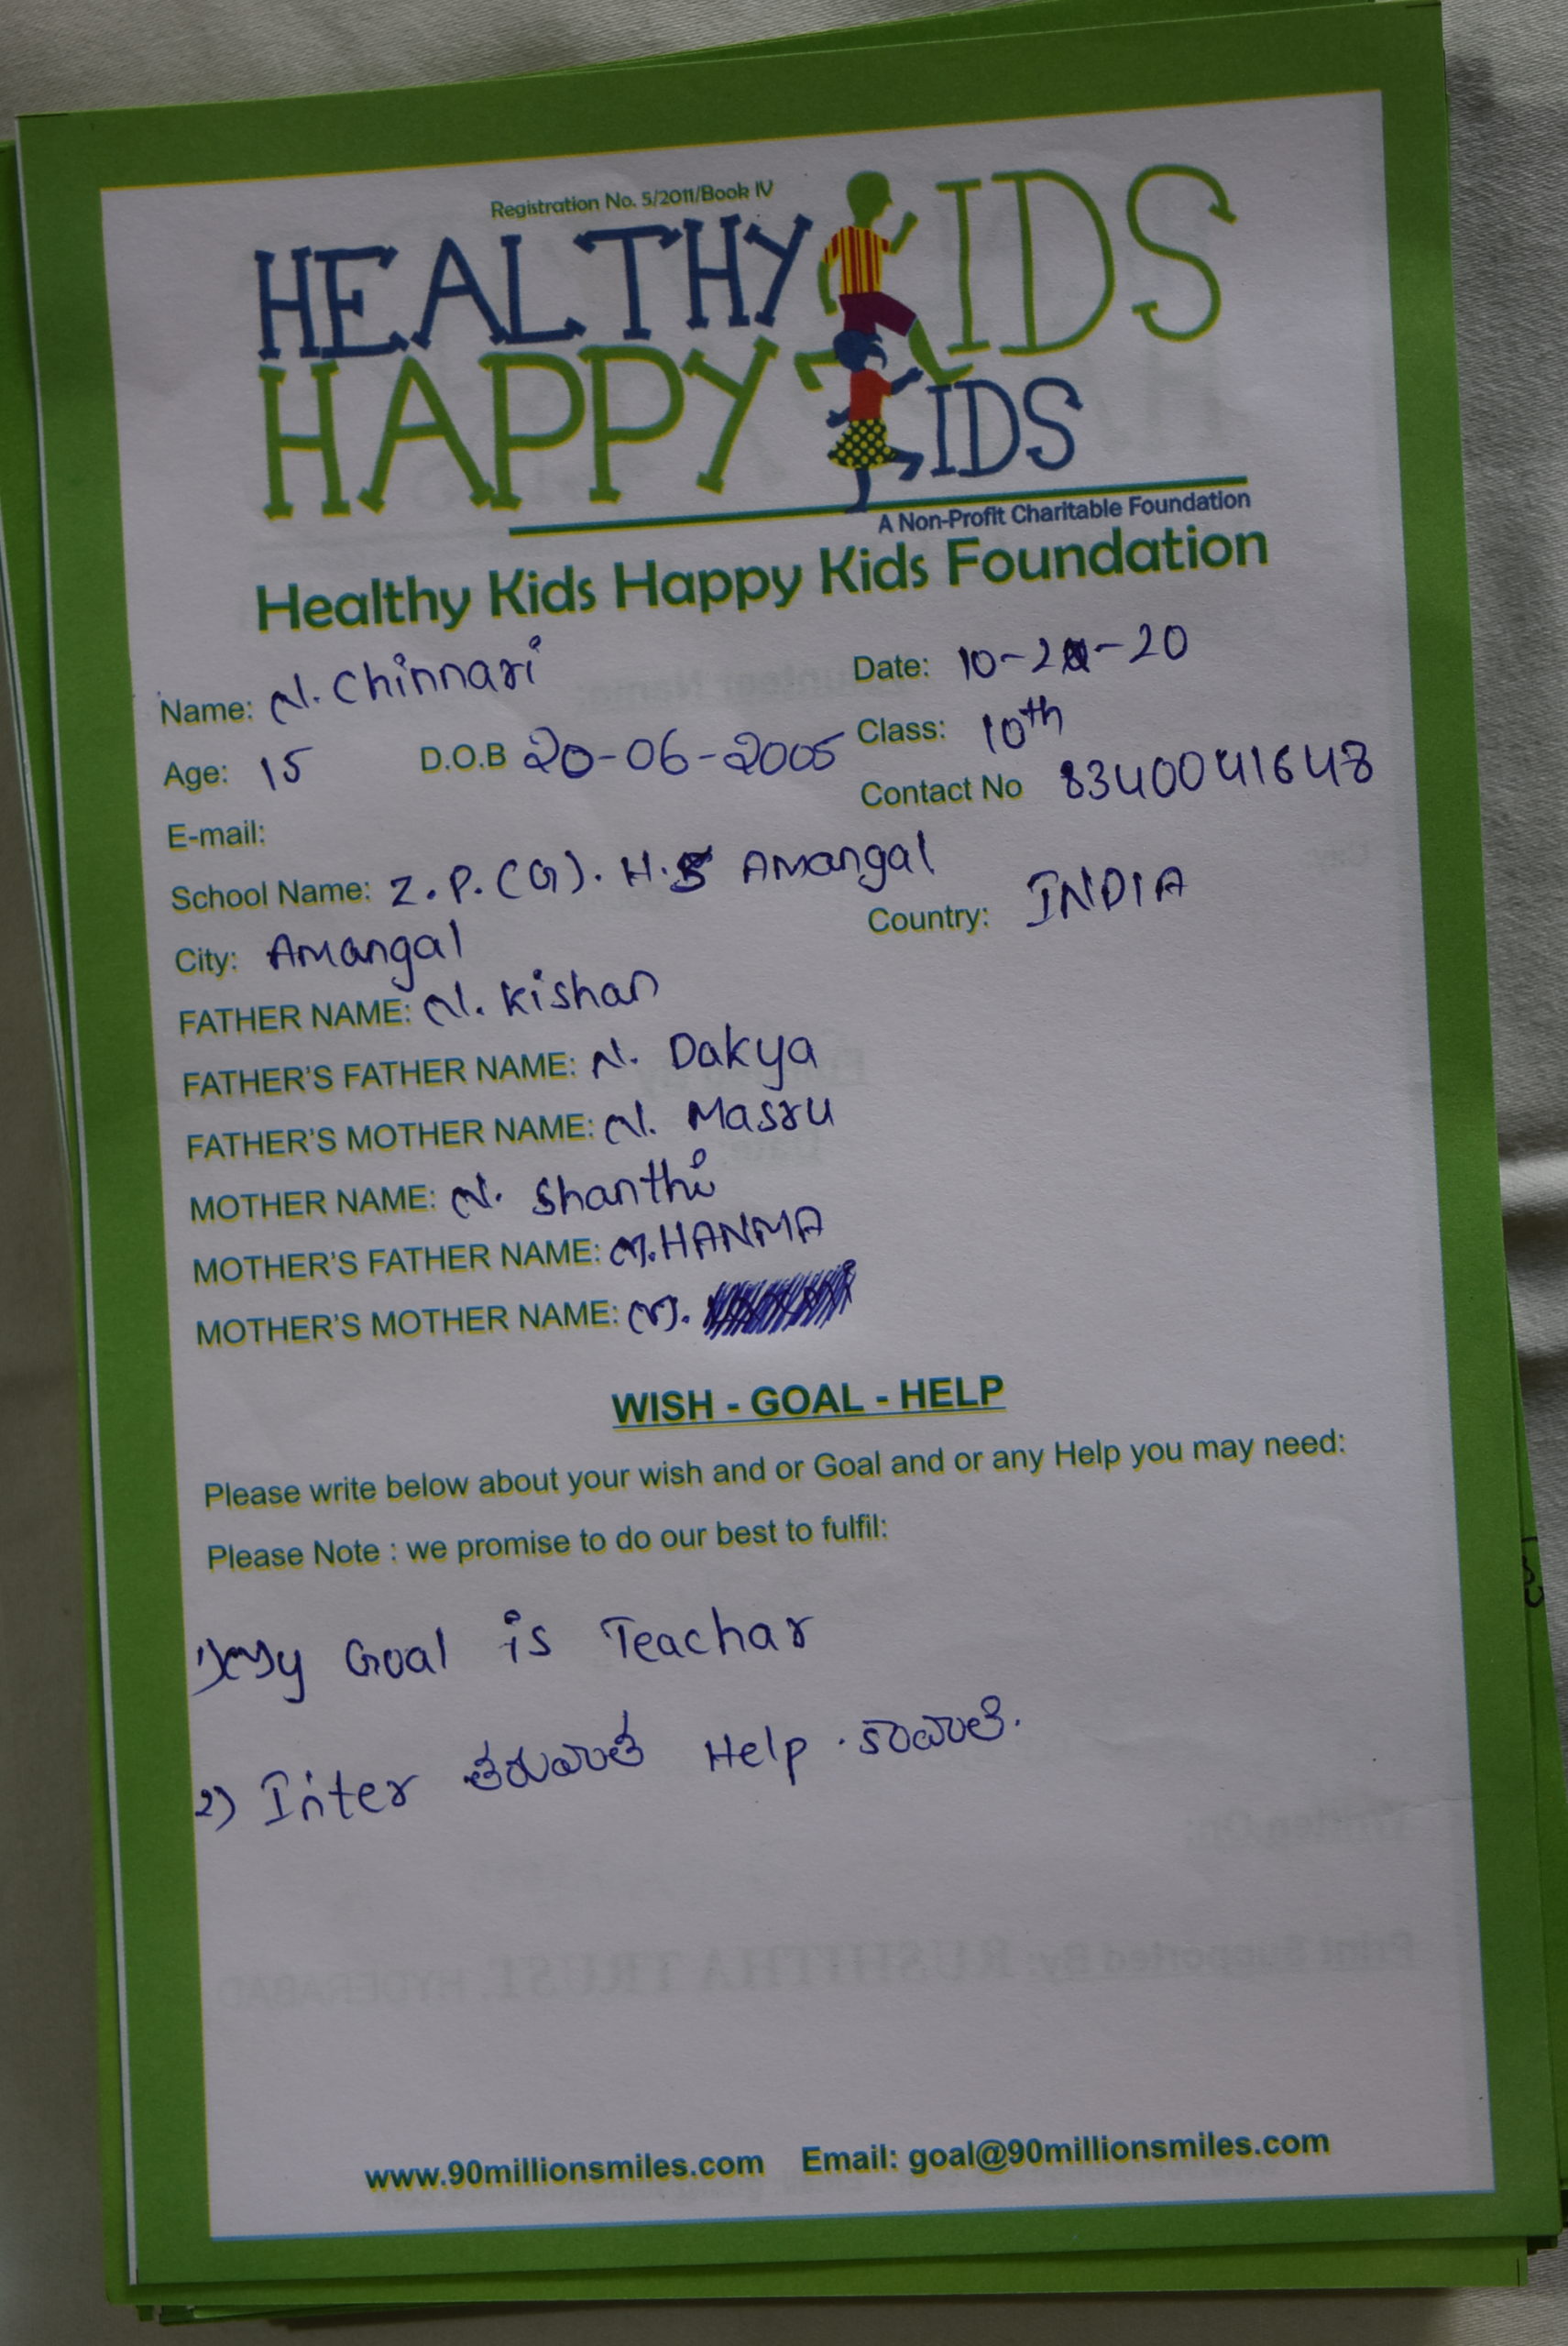 Registration No. 5/2011/Book IV
HEALTHY KIDS
HAPPY KIDS
A Non-Profit Charitable Foundation
Healthy Kids Happy Kids Foundation
Name: N. Chinnari Date: 10-2-20
Age: 15 D.O.B 20-06-2005 Class: 10th
Contact No 8340041648
E-mail:
School Name: Z.P.(G). H.S Amangal
City: Amangal Country: INDIA
FATHER NAME: N. Kishan
FATHER'S FATHER NAME: N. Dakya
FATHER'S MOTHER NAME: N. Masru
MOTHER NAME: N. Shanthi
MOTHER'S FATHER NAME: M. HANMA
MOTHER'S MOTHER NAME: M.
WISH - GOAL - HELP
Please write below about your wish and or Goal and or any Help you may need:
Please Note : we promise to do our best to fulfil:
1) My Goal is Teachar
2) Inter తరువాత Help . కావాలి.
www.90millionsmiles.com Email: goal@90millionsmiles.com